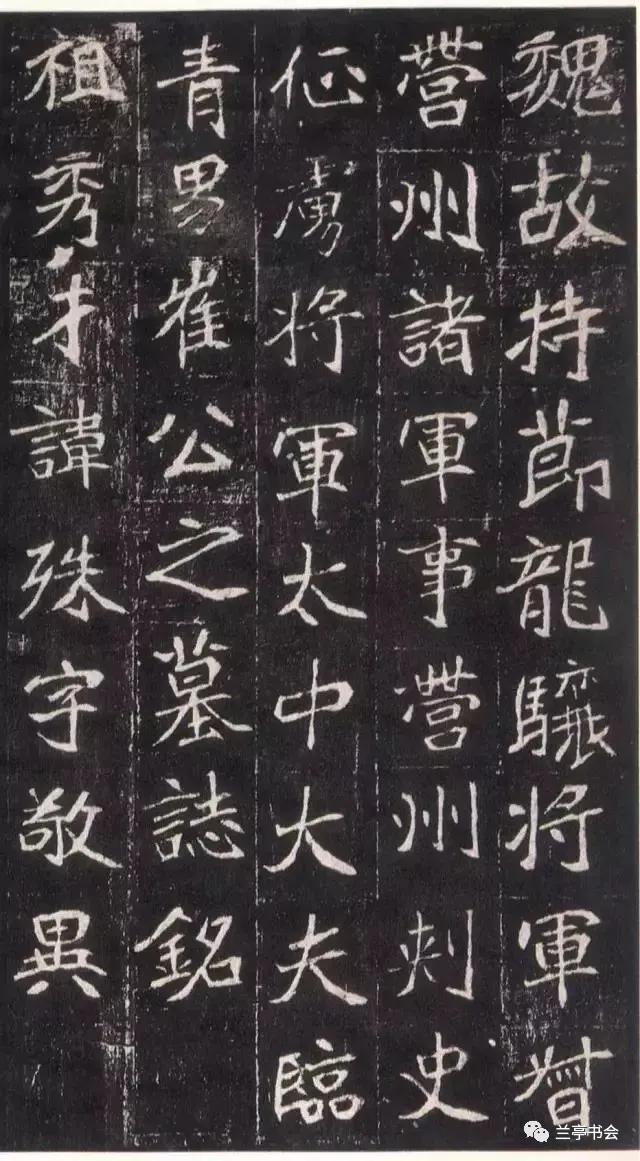 魏故持節龍驤將軍督
營州諸軍事營州刺史
征虜將軍太中大夫臨
青男崔公之墓誌銘
祖秀才諱殊字敬異
兰亭书会